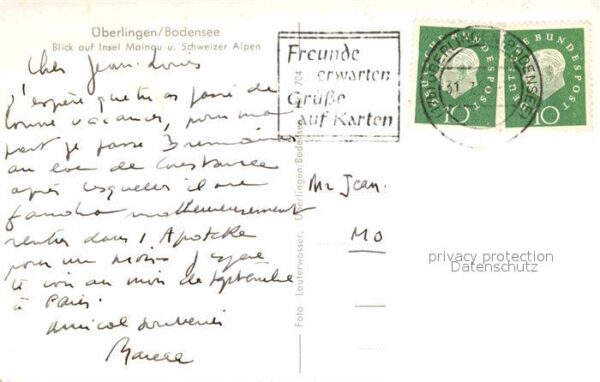 Überlingen/Bodensee
Blick auf Insel Mainau u. Schweizer Alpen
Cher Jean-Louis
J'espère que tu as passé de
bonne vacances, pour ma
part je passe 3 semaines
au lac de Constance
après lesquelles il me
faudra malheureusement
rentrer dans l'Apotheke
pour un mois. J'espère
te voir au mois de septembre
à Paris.
amical souvenir
Freunde
erwarten
Grüße
auf Karten
ÜBERLINGEN (BODENSEE)
DEUTSCHE BUNDESPOST
10
DEUTSCHE BUNDESPOST
10
Foto Lauterwasser, Überlingen/Bodensee 704
Mr Jean-
MO
privacy protection
Datenschutz